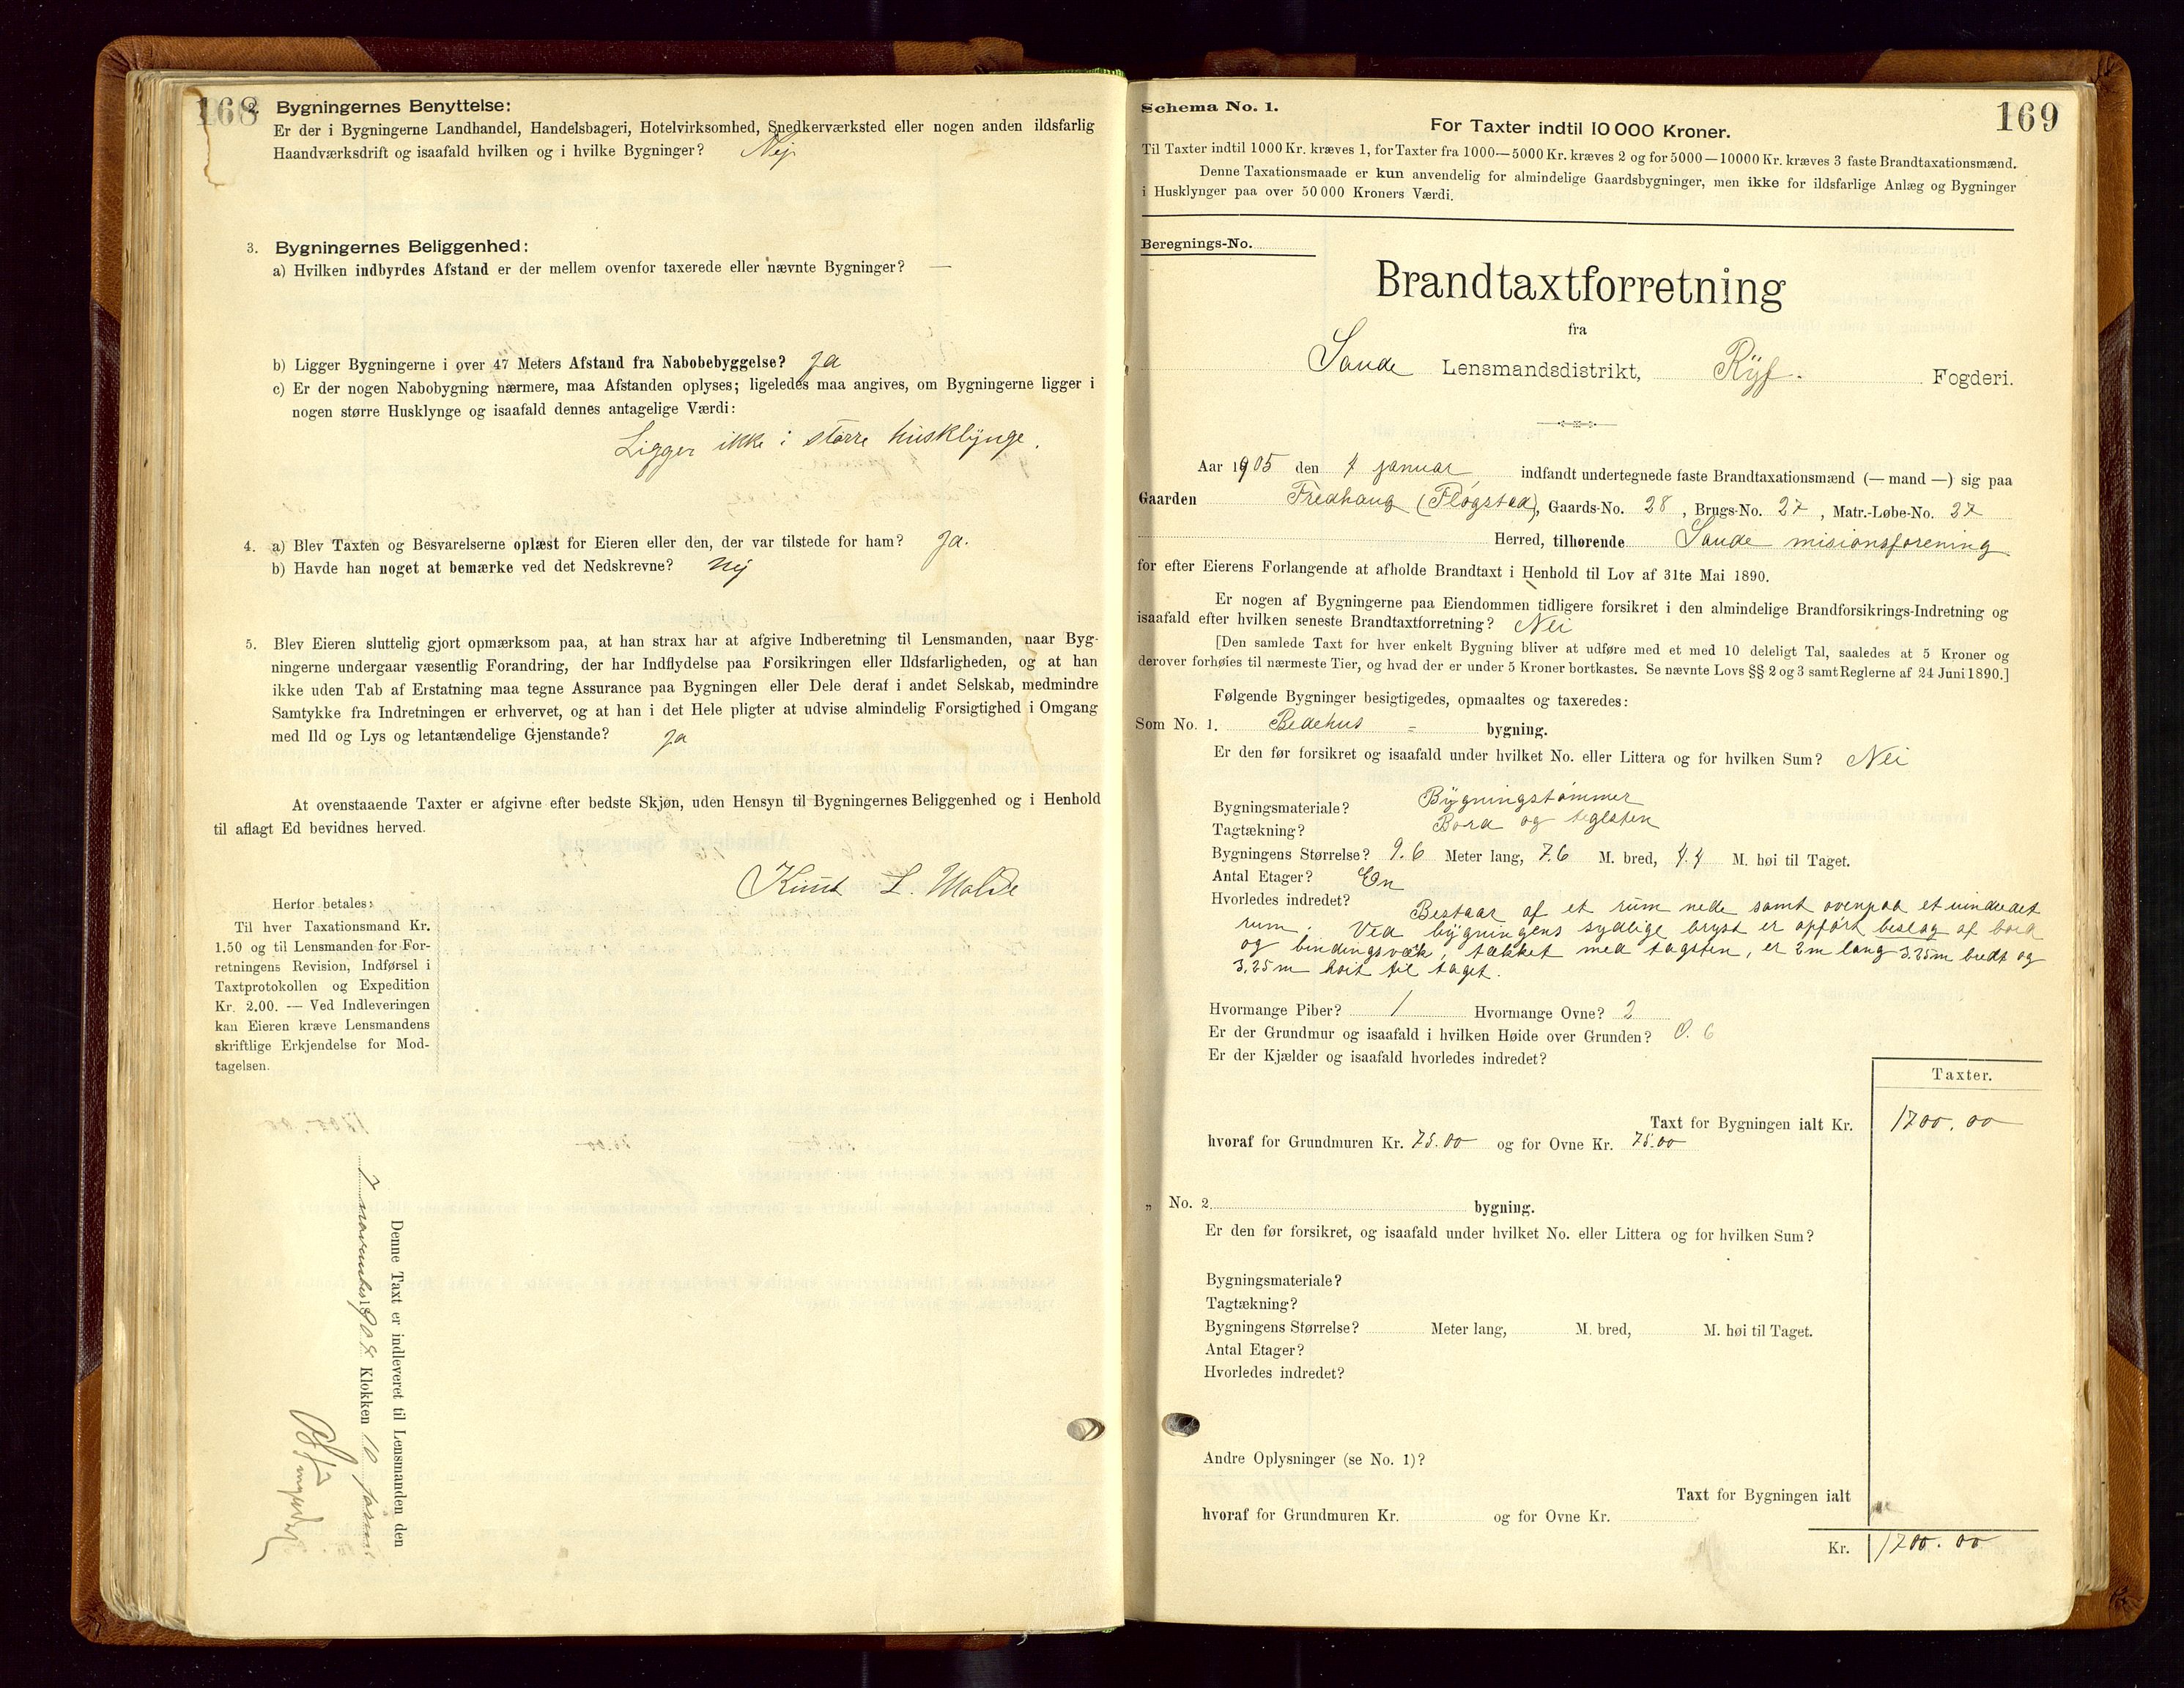 168
2. Bygningernes Benyttelse:
Er der i Bygningerne Landhandel, Handelsbageri, Hotelvirksomhed, Snedkerværksted eller nogen anden ildsfarlig
Haandværksdrift og isaafald hvilken og i hvilke Bygninger? Nej
3. Bygningernes Beliggenhed:
a) Hvilken indbyrdes Afstand er der mellem ovenfor taxerede eller nævnte Bygninger? —
b) Ligger Bygningerne i over 47 Meters Afstand fra Nabobebyggelse? Ja
c) Er der nogen Nabobygning nærmere, maa Afstanden oplyses; ligeledes maa angives, om Bygningerne ligger i
nogen større Husklynge og isaafald dennes antagelige Værdi:
Ligger ikke i større husklynge.
4. a) Blev Taxten og Besvarelserne oplæst for Eieren eller den, der var tilstede for ham? Ja.
b) Havde han noget at bemærke ved det Nedskrevne? Nej
5. Blev Eieren sluttelig gjort opmærksom paa, at han strax har at afgive Indberetning til Lensmanden, naar Byg-
ningerne undergaar væsentlig Forandring, der har Indflydelse paa Forsikringen eller Ildsfarligheden, og at han
ikke uden Tab af Erstatning maa tegne Assurance paa Bygningen eller Dele deraf i andet Selskab, medmindre
Samtykke fra Indretningen er erhvervet, og at han i det Hele pligter at udvise almindelig Forsigtighed i Omgang
med Ild og Lys og letantændelige Gjenstande? Ja
At ovenstaaende Taxter er afgivne efter bedste Skjøn, uden Hensyn til Bygningernes Beliggenhed og i Henhold
til aflagt Ed bevidnes herved.
Knut L. Malde
Herfor betales:
Til hver Taxationsmand Kr.
1.50 og til Lensmanden for For-
retningens Revision, Indførsel i
Taxtprotokollen og Expedition
Kr. 2.00. — Ved Indleveringen
kan Eieren kræve Lensmandens
skriftlige Erkjendelse for Mod-
tagelsen.
Denne Taxt er indleveret til Lensmanden den
7 november 1904 Klokken 10 form.
169
Schema No. 1.
For Taxter indtil 10 000 Kroner.
Til Taxter indtil 1000 Kr. kræves 1, for Taxter fra 1000—5000 Kr. kræves 2 og for 5000—10000 Kr. kræves 3 faste Brandtaxationsmænd.
Denne Taxationsmaade er kun anvendelig for almindelige Gaardsbygninger, men ikke for ildsfarlige Anlæg og Bygninger
i Husklynger paa over 50 000 Kroners Værdi.
Beregnings-No.
Brandtaxtforretning
fra
Sande Lensmandsdistrikt, Ryf. Fogderi.
Aar 1905 den 4 januar indfandt undertegnede faste Brandtaxationsmænd (— mand —) sig paa
Gaarden Fredhaug (Flogstad), Gaards-No. 28, Brugs-No. 27, Matr.-Løbe-No. 27
Herred, tilhørende Saude misionsforening
for efter Eierens Forlangende at afholde Brandtaxt i Henhold til Lov af 31te Mai 1890.
Er nogen af Bygningerne paa Eiendommen tidligere forsikret i den almindelige Brandforsikrings-Indretning og
isaafald efter hvilken seneste Brandtaxtforretning? Nei
[Den samlede Taxt for hver enkelt Bygning bliver at udføre med et med 10 deleligt Tal, saaledes at 5 Kroner og
derover forhøies til nærmeste Tier, og hvad der er under 5 Kroner bortkastes. Se nævnte Lovs §§ 2 og 3 samt Reglerne af 24 Juni 1890.]
Følgende Bygninger besigtigedes, opmaaltes og taxeredes:
Som No. 1. Bedehus = bygning.
Er den før forsikret og isaafald under hvilket No. eller Littera og for hvilken Sum? Nei
Bygningsmateriale? Bygningstømmer
Tagtækning? Bord og teglsten
Bygningens Størrelse? 9.6 Meter lang, 7.6 M. bred, 4.4 M. høi til Taget.
Antal Etager? En
Hvorledes indredet? Bestaar af et rum nede samt ovenpaa et uindredet
rum. Ved bygningens sydlige bryst er opført beslag af bord
og bindingsværk, tækket med tagsten, er 2 m lang 3.25 m bredt og
3,25 m høit til taget.
Hvormange Piber? 1 Hvormange Ovne? 2
Er der Grundmur og isaafald i hvilken Høide over Grunden? 0.6
Er der Kjælder og isaafald hvorledes indredet?
Taxter.
Taxt for Bygningen ialt Kr. 1700.00
hvoraf for Grundmuren Kr. 75.00 og for Ovne Kr. 75.00
„ No. 2. bygning.
Er den før forsikret, og isaafald under hvilket No. eller Littera og for hvilken Sum?
Bygningsmateriale?
Tagtækning?
Bygningens Størrelse? Meter lang, M. bred, M. høi til Taget.
Antal Etager?
Hvorledes indredet?
Andre Oplysninger (se No. 1)?
Taxt for Bygningen ialt
hvoraf for Grundmuren Kr. og for Ovne Kr.
Kr. 1700.00